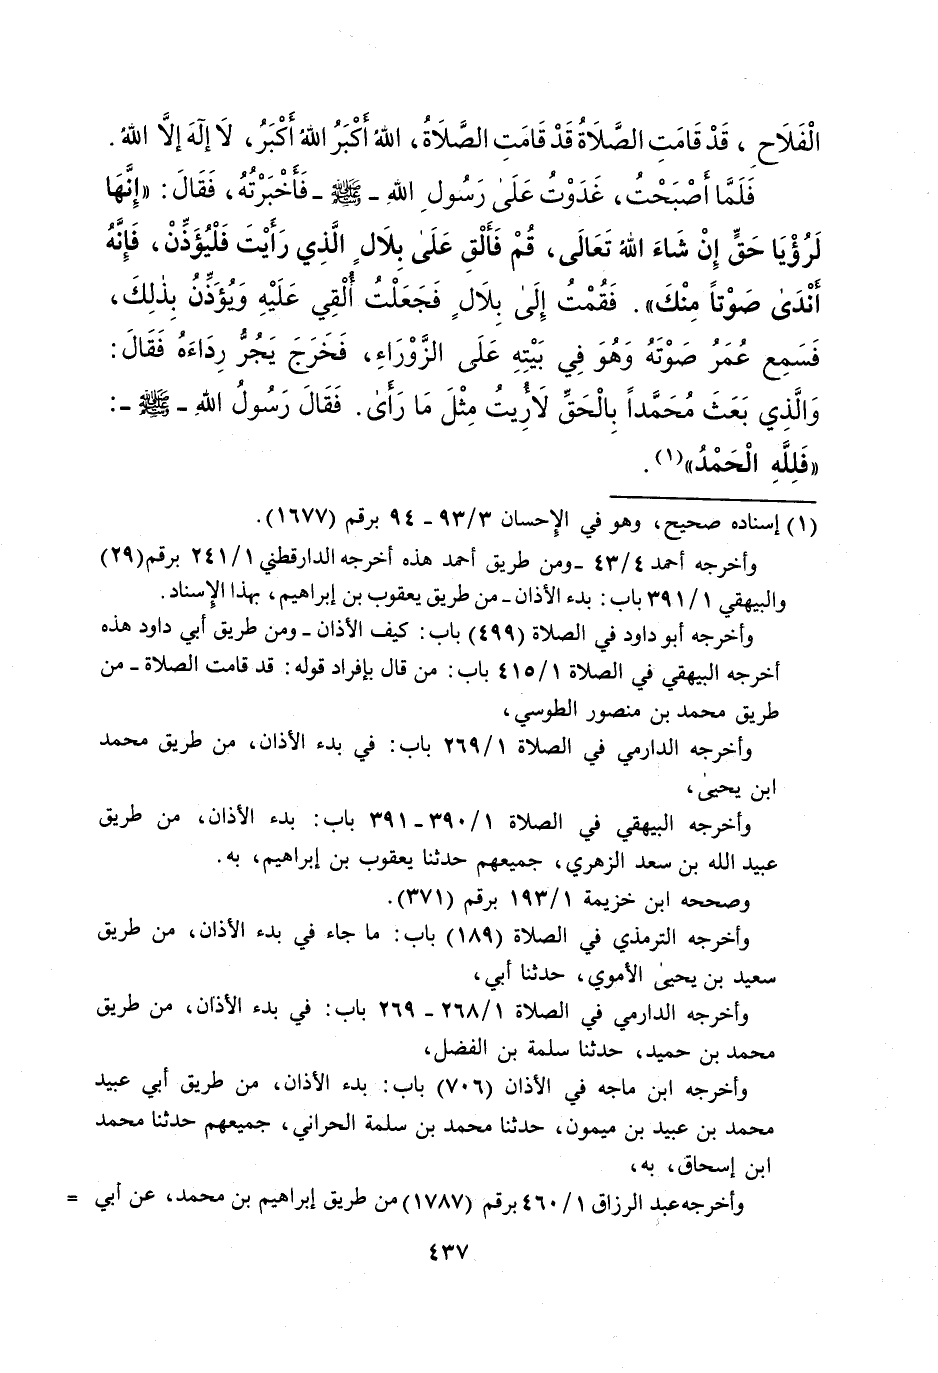 الْفَلَاحِ ، قَدْ قَامَتِ الصَّلَاةُ قَدْ قَامَتِ الصَّلَاةُ، اللهُ أَكْبَرُ اللهُ أَكْبَرُ، لَا إِلٰهَ إِلَّا اللهُ.
فَلَمَّا أَصْبَحْتُ، غَدَوْتُ عَلَىٰ رَسُولِ اللهِ - ﷺ - فَأَخْبَرْتُهُ، فَقَالَ: «إِنَّهَا
لَرُؤْيَا حَقٍّ إِنْ شَاءَ اللهُ تَعَالَى، قُمْ فَأَلْقِ عَلَىٰ بِلَالٍ الَّذِي رَأَيْتَ فَلْيُؤَذِّنْ، فَإِنَّهُ
أَنْدَىٰ صَوْتاً مِنْكَ». فَقُمْتُ إِلَىٰ بِلَالٍ فَجَعَلْتُ أُلْقِي عَلَيْهِ وَيُؤَذِّنُ بِذٰلِكَ،
فَسَمِعَ عُمَرُ صَوْتَهُ وَهُوَ فِي بَيْتِهِ عَلَى الزَّوْرَاءِ، فَخَرَجَ يَجُرُّ رِدَاءَهُ فَقَالَ:
وَالَّذِي بَعَثَ مُحَمَّداً بِالْحَقِّ لَأُرِيتُ مِثْلَ مَا رَأَىٰ. فَقَالَ رَسُولُ اللهِ - ﷺ -:
«فَلِلَّهِ الْحَمْدُ»(١).
(١) إسناده صحيح، وهو في الإحسان ٩٣/٣ - ٩٤ برقم (١٦٧٧).
وأخرجه أحمد ٤٣/٤ -ومن طريق أحمد هذه أخرجه الدارقطني ٢٤١/١ برقم(٢٩)
والبيهقي ٣٩١/١ باب: بدء الأذان - من طريق يعقوب بن إبراهيم، بهذا الإسناد.
وأخرجه أبو داود في الصلاة (٤٩٩) باب: كيف الأذان - ومن طريق أبي داود هذه
أخرجه البيهقي في الصلاة ٤١٥/١ باب: من قال بإفراد قوله: قد قامت الصلاة - من
طريق محمد بن منصور الطوسي،
وأخرجه الدارمي في الصلاة ٢٦٩/١ باب: في بدء الأذان، من طريق محمد
ابن يحيىٰ،
وأخرجه البيهقي في الصلاة ٣٩٠/١ - ٣٩١ باب: بدء الأذان، من طريق
عبيد الله بن سعد الزهري، جميعهم حدثنا يعقوب بن إبراهيم، به.
وصححه ابن خزيمة ١٩٣/١ برقم (٣٧١).
وأخرجه الترمذي في الصلاة (١٨٩) باب: ما جاء في بدء الأذان، من طريق
سعيد بن يحيىٰ الأموي، حدثنا أبي،
وأخرجه الدارمي في الصلاة ٢٦٨/١ - ٢٦٩ باب: في بدء الأذان، من طريق
محمد بن حميد، حدثنا سلمة بن الفضل،
وأخرجه ابن ماجه في الأذان (٧٠٦) باب: بدء الأذان، من طريق أبي عبيد
محمد بن عبيد بن ميمون، حدثنا محمد بن سلمة الحراني، جميعهم حدثنا محمد
ابن إسحاق، به،
وأخرجه عبد الرزاق ٤٦٠/١ برقم (١٧٨٧) من طريق إبراهيم بن محمد، عن أبي =
٤٣٧